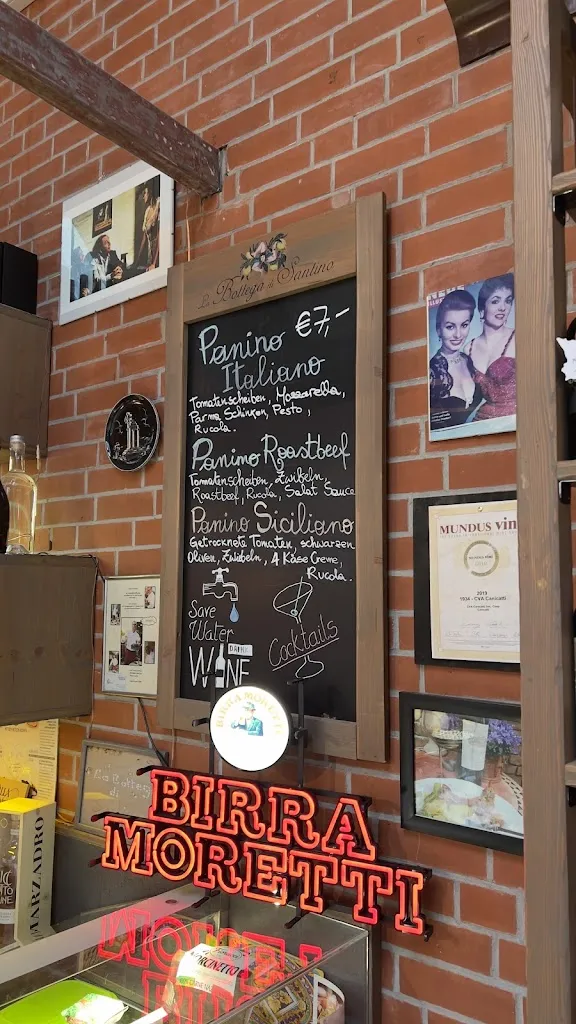 La Bottega di Santino
Panino €7,-
Italiano
Tomatenscheiben, Mozzarella,
Parma Schinken, Pesto,
Rucola.
Panino Roastbeef
Tomatenscheiben, Zwibeln,
Roastbeef, Rucola, Salat Sauce
Panino Siciliano
Getrocknete Tomaten, schwarzen
Oliven, Zwiebeln, 4 Käse Creme,
Rucola.
Save
Water
DRINK
WINE
Cocktails
BIRRA MORETTI
BIRRA
MORETTI
NEUE
MUNDUS vini
2019
1934 - CVA Canicatti
La Bottega
di
MARZADRO